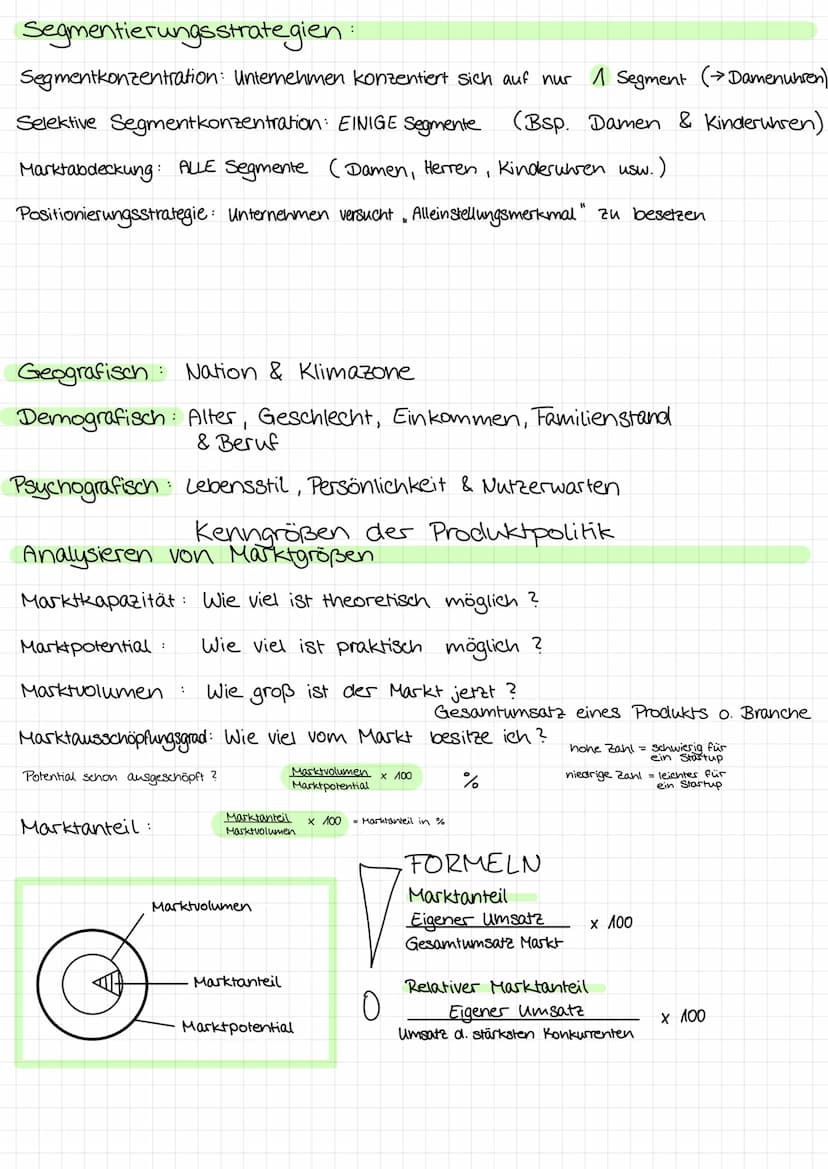 Segmentierungsstrategien:
Segmentkonzentration: Unternehmen konzentiert sich auf nur 1 Segment (→ Damenuhren)
Selektive Segmentkonzentration: EINIGE Segmente (Bsp. Damen & Kinderuhren)
Marktabdeckung: ALLE Segmente (Damen, Herren, Kinderuhren usw.)
Positionierungsstrategie: Unternehmen versucht „Alleinstellungsmerkmal" zu besetzen
Geografisch: Nation & Klimazone
Demografisch: Alter, Geschlecht, Einkommen, Familienstand
& Beruf
Psychografisch: Lebensstil, Persönlichkeit & Nutzerwarten
Kenngrößen der Produktpolitik
Analysieren von Marktgrößen
Marktkapazität: Wie viel ist theoretisch möglich?
Marktpotential: Wie viel ist praktisch möglich?
Marktvolumen: Wie groß ist der Markt jetzt?
Gesamtumsatz eines Produkts o. Branche
Marktausschöpfungsgrad: Wie viel vom Markt besitze ich?
hohe Zahl = schwierig für
ein Startup
Potential schon ausgeschöpft? Marktvolumen x 100 %
Marktpotential
niedrige Zahl = leichter für
ein Startup
Marktanteil: Marktanteil x 100 = Marktanteil in %
Marktvolumen
Marktvolumen
Marktanteil
Marktpotential
FORMELN
Marktanteil
Eigener Umsatz x 100
Gesamtumsatz Markt
Relativer Marktanteil
Eigener Umsatz x 100
Umsatz d. stärksten Konkurrenten